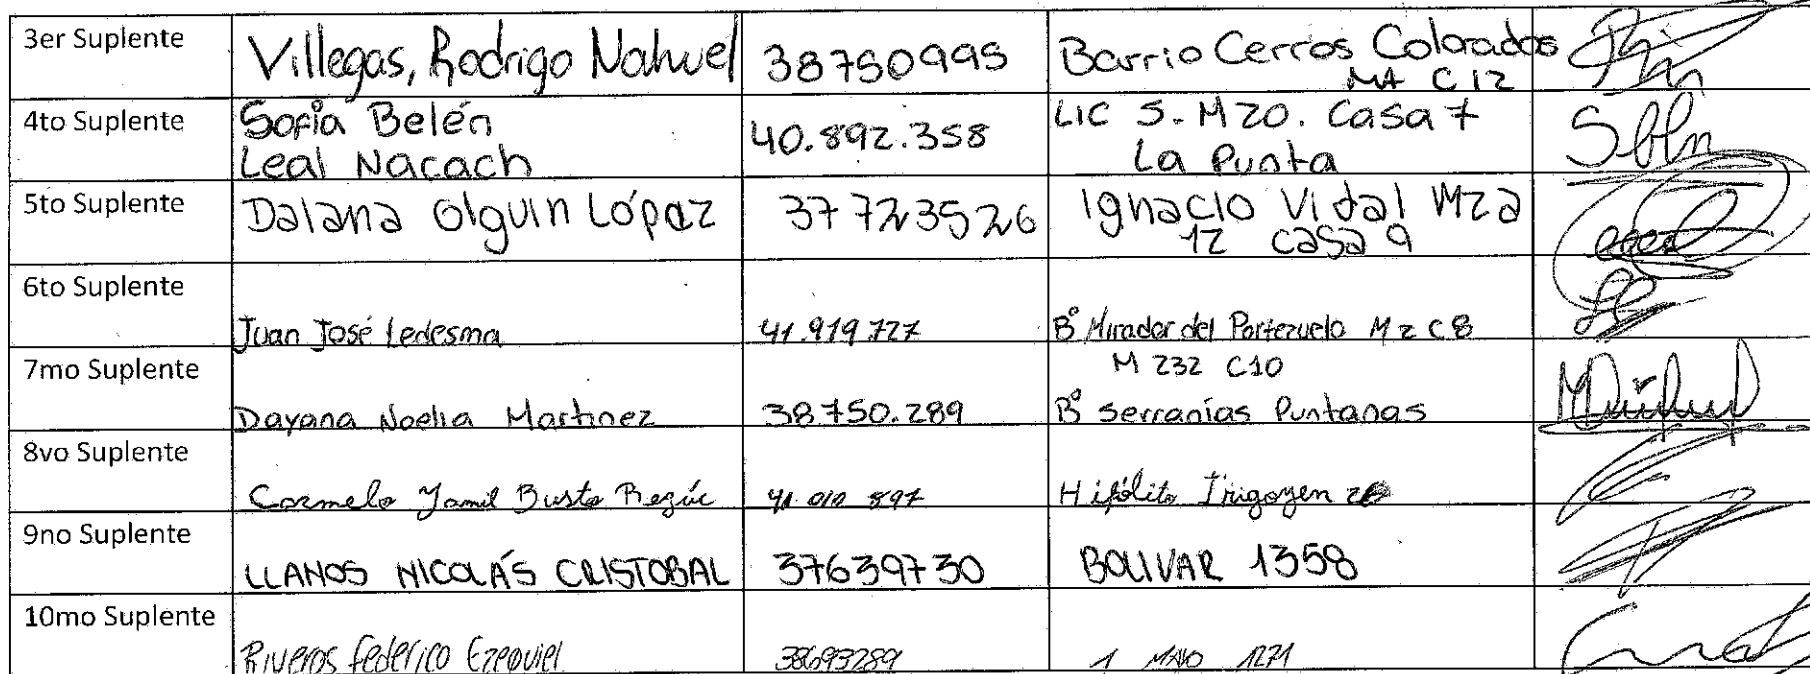 3er Suplente Villegas, Rodrigo Nahuel 38750995 Barrio Cerros Colorados
MA C12
4to Suplente Sofía Belén 40.892.358 LIC 5. M 20. Casa 7
Leal Nacach La Punta
5to Suplente Daiana Olguin López 37723526 Ignacio Vidal Mza
12 casa 9
6to Suplente
Juan José Ledesma 41.919.727 B° Mirador del Portezuelo M2 C8
7mo Suplente M 232 C10
Dayana Noelia Martinez 38.750.289 B° Serranías Puntanas
8vo Suplente
Carmelo Yamil Busto 41.010.897 Hipólito Irigoyen
9no Suplente
LLANOS NICOLÁS CRISTOBAL 37639730 BOLIVAR 1358
10mo Suplente
Riveros Federico Ezequiel 38693289 1 MAYO 1271